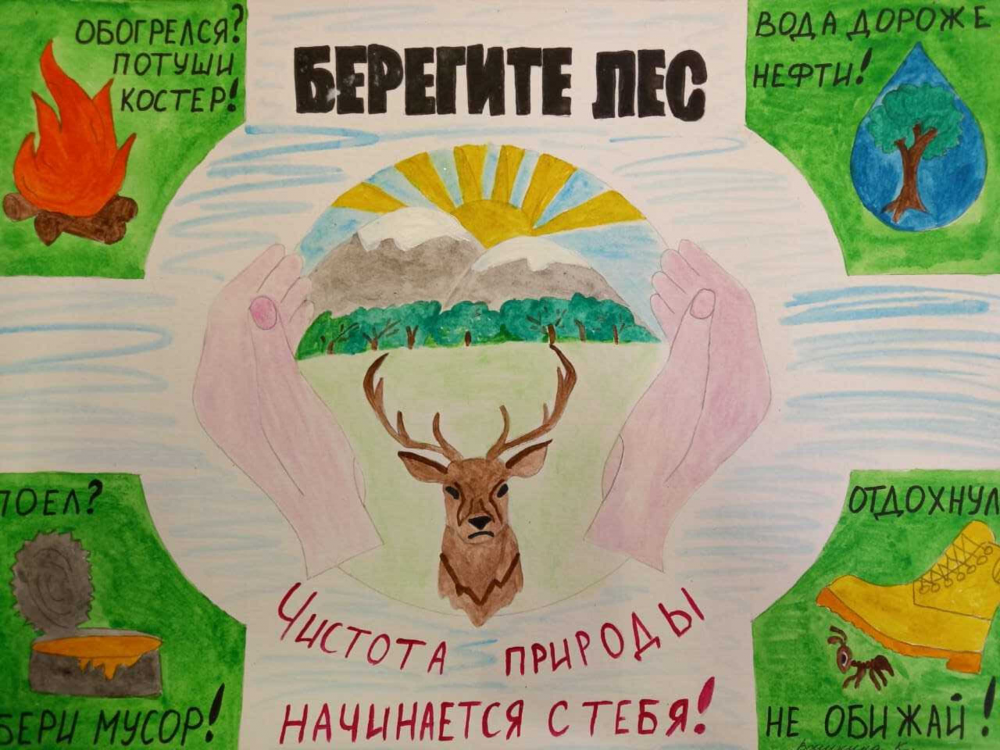 ОБОГРЕЛСЯ?
ПОТУШИ
КОСТЕР!
БЕРЕГИТЕ ЛЕС
ВОДА ДОРОЖЕ
НЕФТИ!
ПОЕЛ?
БЕРИ МУСОР!
ОТДОХНУЛ
НЕ ОБИЖАЙ!
ЧИСТОТА ПРИРОДЫ
НАЧИНАЕТСЯ С ТЕБЯ!